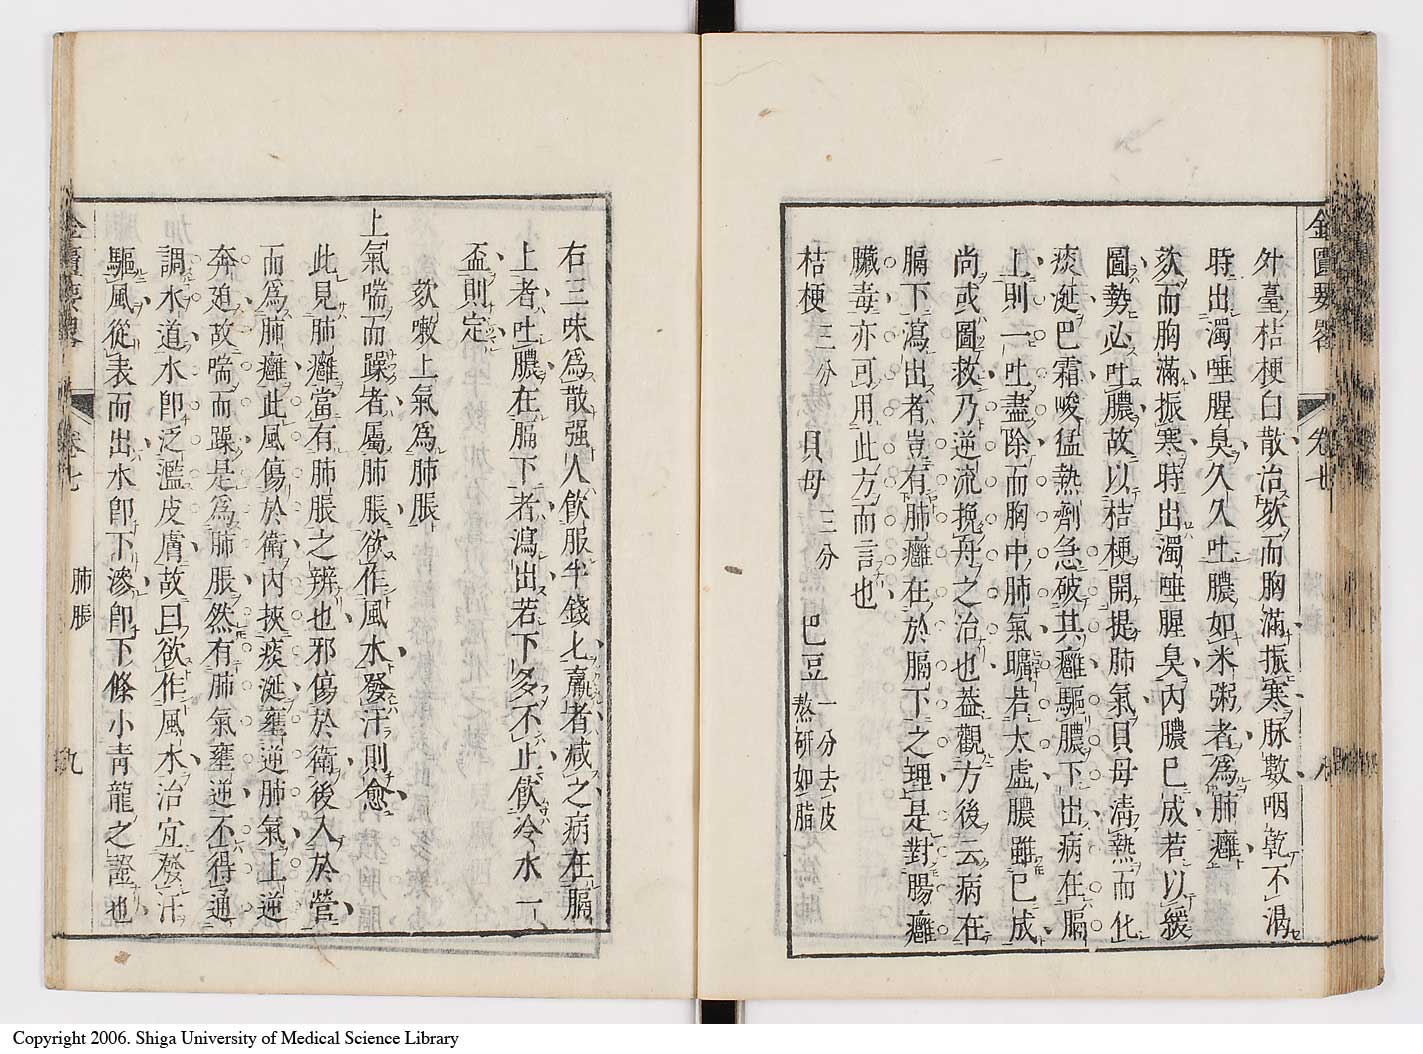 外臺桔梗白散治欬而胸滿振寒脉數咽乾不渴
時出濁唾腥臭久久吐膿如米粥者爲肺癰
欬而胸滿振寒時出濁唾腥臭內膿已成若以緩
圖勢必吐膿故以桔梗開提肺氣貝母淸熱而化
痰涎巴霜峻猛熱劑急破其癰驅膿下出病在膈
上則一吐盡除而胸中肺氣曠若太虛膿雖已成
尚或圖救乃逆流挽舟之治也葢觀方後云病在
膈下瀉出者豈有肺癰在於膈下之理是對腸癰
臟毒亦可用此方而言也
桔梗三分 貝母三分 巴豆一分去皮熬研如脂
卷七
八
右三味爲散强人飮服半錢匕羸者减之病在膈
上者吐膿在膈下者瀉出若下多不止飮冷水一
盃則定
欬嗽上氣爲肺脹
上氣喘而躁者屬肺脹欲作風水發汗則愈
此見肺癰當有肺脹之辨也邪傷於衛後入於營
而爲肺癰此風傷於衛內挾痰涎壅逆肺氣上逆
奔廹故喘而躁是爲肺脹然有肺氣壅逆不得通
調水道水卽泛濫皮膚故曰欲作風水治宜發汗
驅風從表而出水卽下滲卽下條小青龍之證也
卷七
肺脹
九
Copyright 2006. Shiga University of Medical Science Library